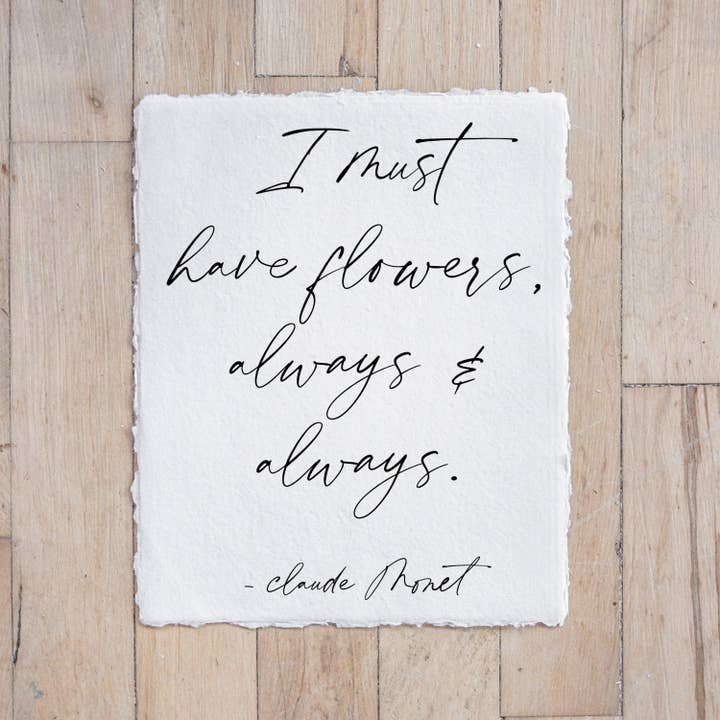 I must
have flowers,
always &
always.
- Claude Monet